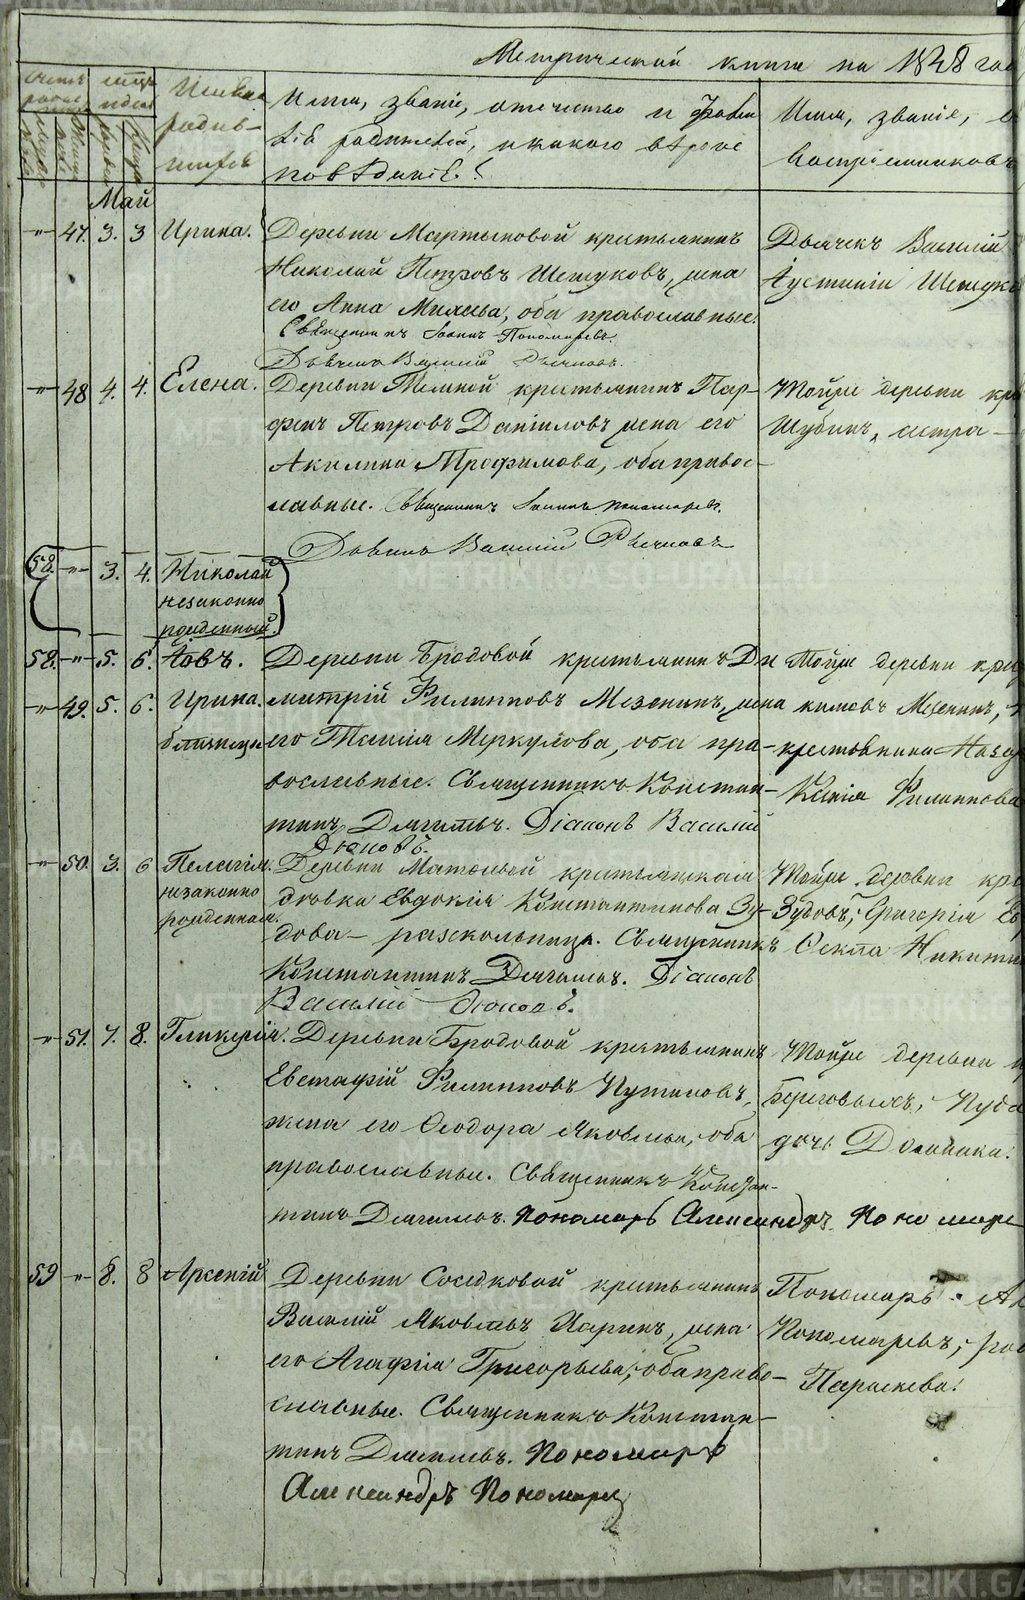 Метрической книги на 1848 год
Счетъ родив
мѣсяцъ и дни
Имена родив-
шихся
Имя, званіе, отечество и фами
лія родителей, и какого вѣроис
повѣданія?
Имя, званіе, о
воспріемниковъ
Май
-"- 47. 3. 3 Ирина.
Деревни Мартыновой крестьянинъ
Николай Петровъ Шешуковъ, жена
его Анна Михеева, оба православные.
Священникъ Іоаннъ Пономаревъ.
Дьячекъ Василій
Іустинія Шешуко
Дьячекъ Василій
-"- 48 4. 4. Елена.
Деревни Темной крестьянинъ Пар-
фенъ Петровъ Даніиловъ, жена его
Акилина Трофимова, оба правос-
лавные. Священникъ Іоаннъ Пономаревъ.
Тойже деревни кре
Шубинъ, сестра -
Василій
58. -"- 3. 4. Николай
незаконно
рожденный.
58. -"- 5. 6. Іовъ.
-"- 49. 5. 6. Ирина.
близнецы
Деревни Бродовой крестьянинъ Ди
митрій Филипповъ Мезенинъ, жена
его Таисія Меркулова, оба пра-
вославные. Священникъ Констан-
тинъ Дягилевъ. Діаконъ Василій
Тойже деревни кре
кимовъ Мезенинъ,
крестовника Назар
Ксенія Филиппова
-"- 50. 3. 6 Пелагія.
незаконно
рожденная.
Деревни крестьянская
дѣвка Евдокія Константинова Зу-
дова - раскольница. Священникъ
Константинъ Дягилевъ. Діаконъ
Василій
Тойже деревни кре
Зудовъ, Григорія Ев
Ѳекла Никитин
-"- 51. 7. 8. Гликерія.
Деревни Бродовой крестьянинъ
Евстафій Филипповъ Путиловъ,
жена его Ѳеодора Яковлева, оба
православные. Священникъ Констан-
тинъ Дягилевъ. Пономарь Александръ Пономаре
Тойже деревни к
Береговыхъ,
дочь Домника.
59 -"- 8. 8 Арсеній
Деревни Соседковой крестьянинъ
Василій Яковлевъ Ларинъ, жена
его Агафія Григорьева, оба право-
славные. Священникъ Констан-
тинъ Дягилевъ. Пономарь
Александръ Пономарев
Пономарь Ал
Пономаревъ,
Параскева.
METRIKI.GASO-URAL.RU